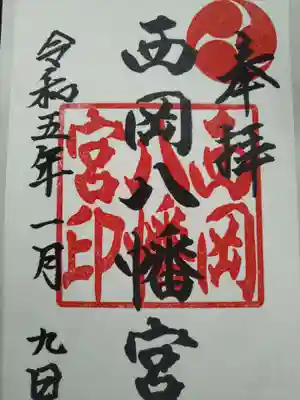 奉拝
西岡八幡宮
西岡
八幡
宮印
令和五年一月九日